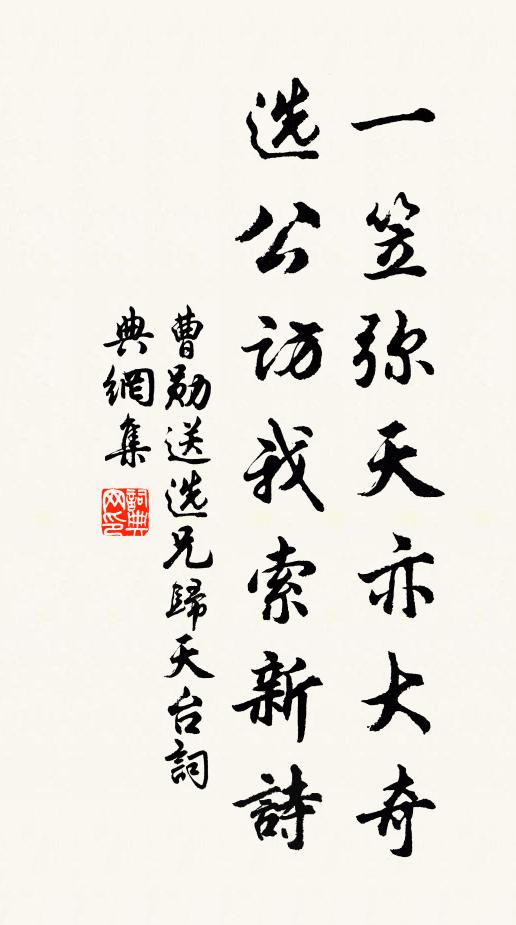 一笠弥天亦大奇
选公访我索新詩
曹勋送选兄歸天台詞
典網集
詞典网印